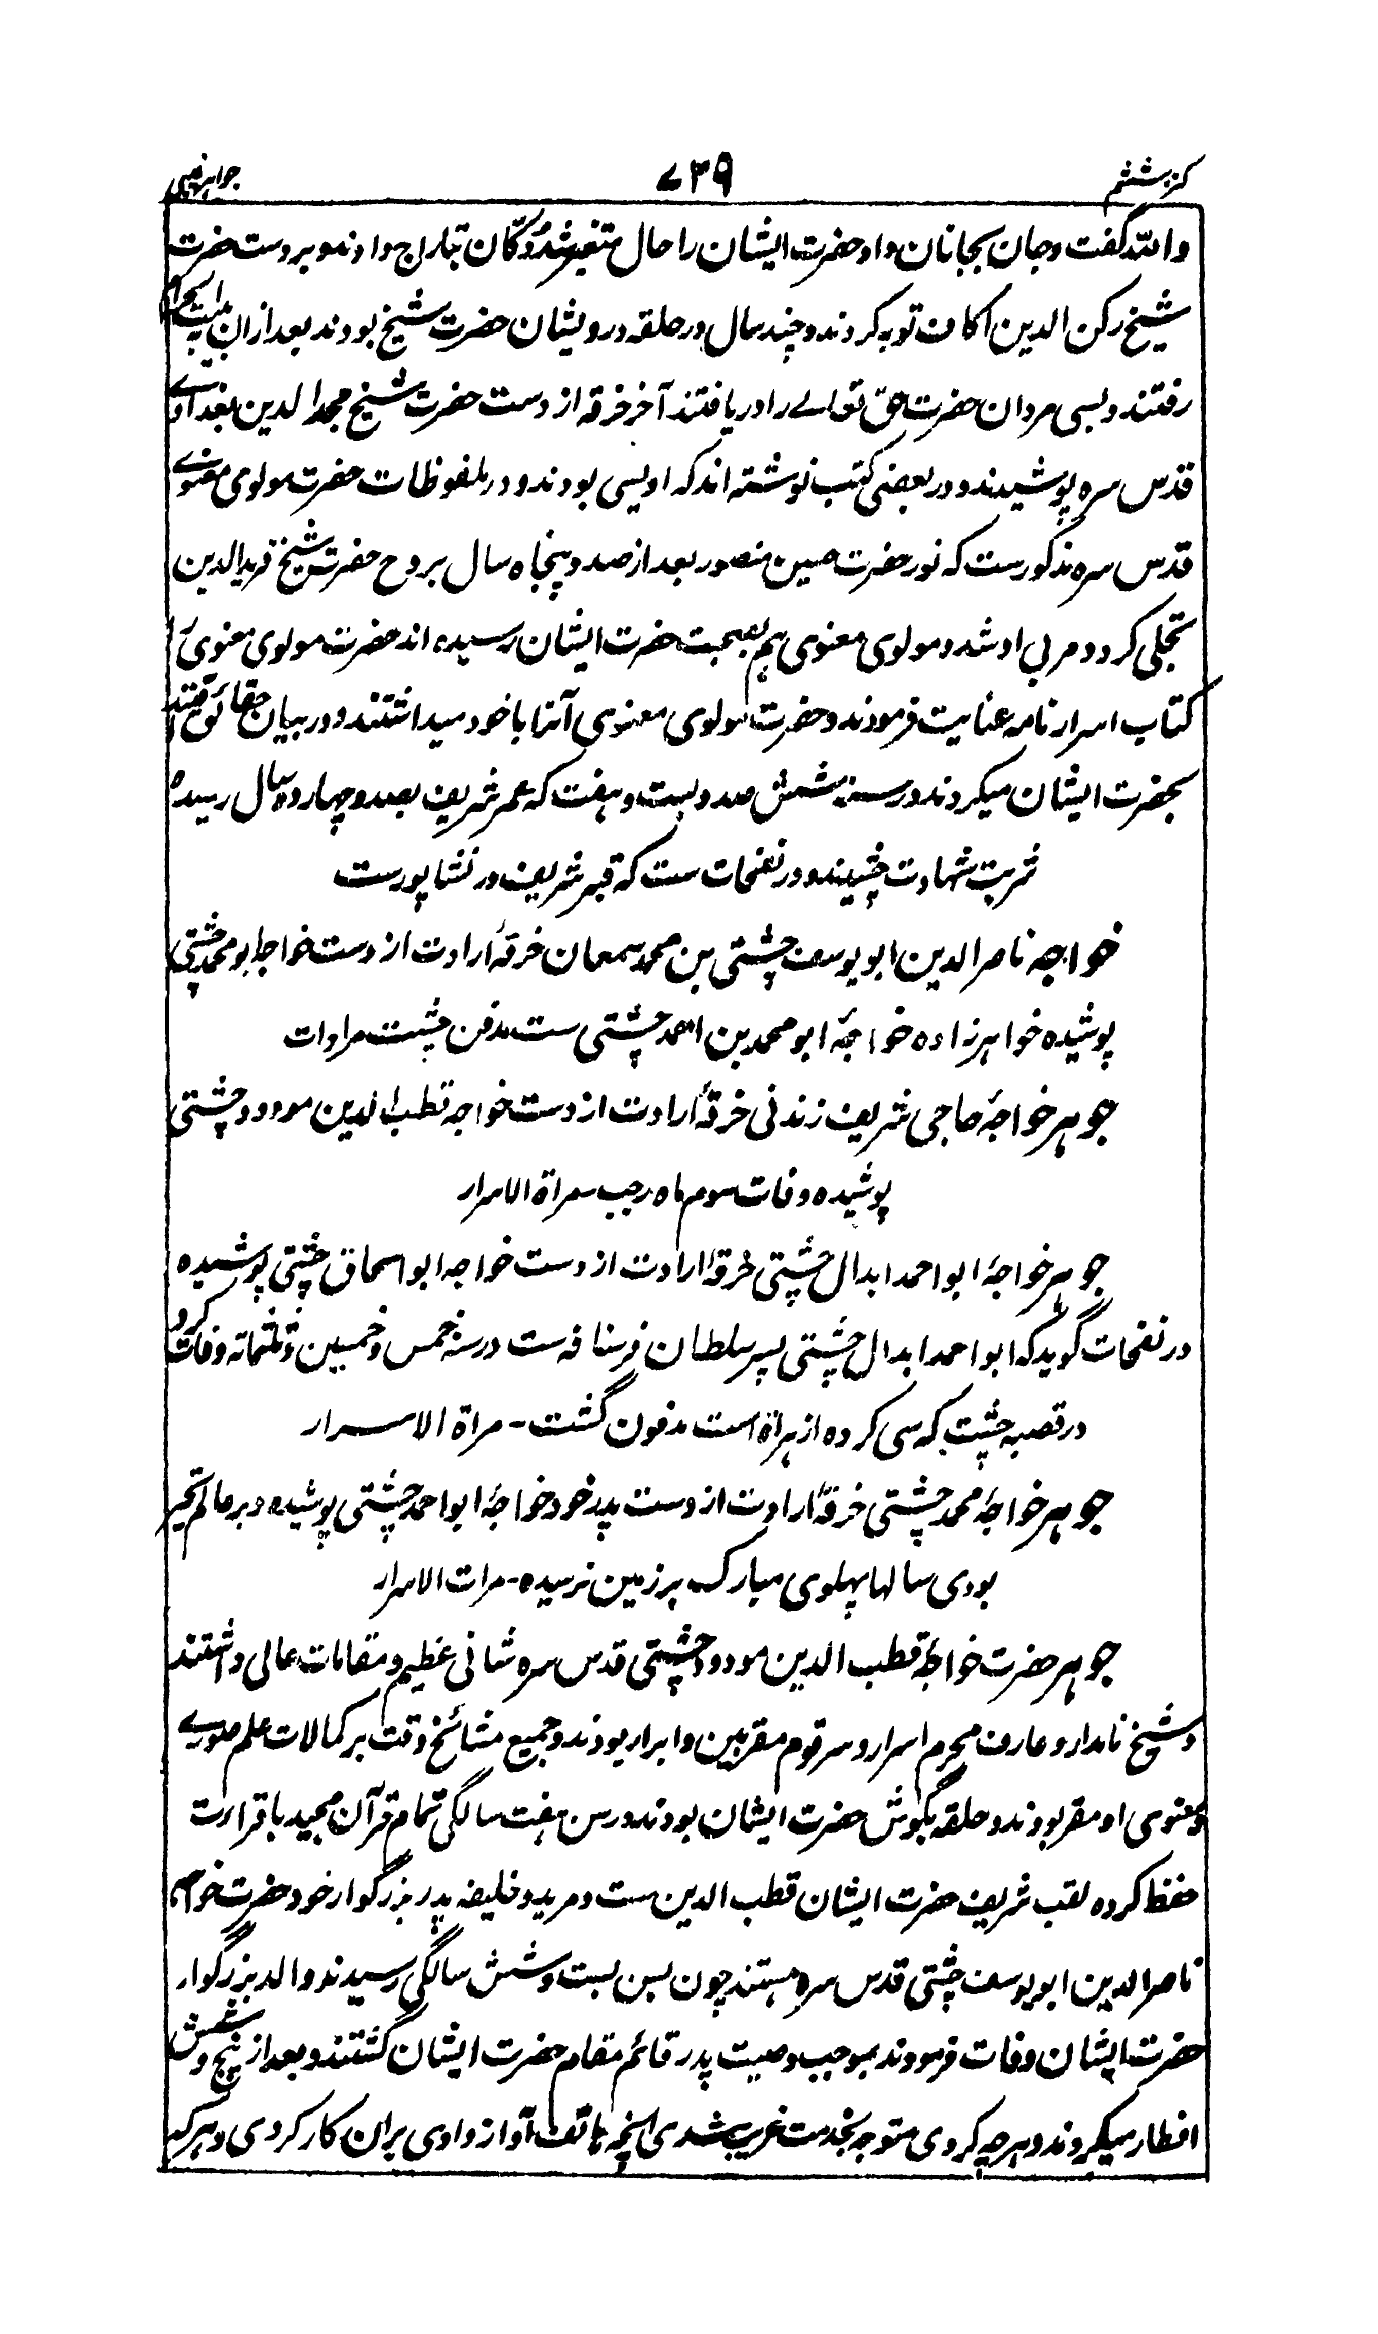 کنز ششم ۷۳۹ جواہر غیبی
واللہ گفت و جان بجانان داد حضرت ایشان را حال متغیر شد و دکان بتاراج دادند و بر دست حضرت
شیخ رکن الدین اکاف توبہ کردند و چند سال در حلقہ درویشان حضرت شیخ بودند بعد ازان بہ بیت الحرام
رفتند و بسی مردان حضرت حق تعالے را دریافتند آخر خرقہ از دست حضرت شیخ مجد الدین بغدادے
قدس سرہ پوشیدند و در بعضی کتب نوشتہ اند کہ اویسی بودند و در ملفوظات حضرت مولوی معنوے
قدس سرہ مذکورست کہ نور حضرت حسین منصور بعد از صد و پنجاہ سال بر روح حضرت شیخ فرید الدین
تجلی کرد و مربی او شد و مولوی معنوی ہم بصحبت حضرت ایشان رسیدہ اند حضرت مولوی معنوی را
کتاب اسرار نامہ عنایت فرمودند و حضرت مولوی معنوی آنرا با خود میداشتند و در بیان حقائق اقتدا
بحضرت ایشان میکردند در سنہ شش صد و بست و ہفت کہ عمر شریف بصد و چہاردہ سال رسیدہ
شربت شہادت چشیدند و در نفحات ست کہ قبر شریف در نشاپورست
خواجہ ناصر الدین ابو یوسف چشتی بن محمد سمعان خرقۂ ارادت از دست خواجہ ابو محمد چشتی
پوشیدہ خواہرزادہ خواجۂ ابو محمد بن احمد چشتی ست مدفن چشت مراوات
جوہر خواجۂ حاجی شریف زندنی خرقۂ ارادت از دست خواجہ قطب الدین مودود چشتی
پوشیدہ وفات سوم ماہ رجب مراۃ الاسرار
جوہر خواجۂ ابو احمد ابدال چشتی خرقۂ ارادت از دست خواجہ ابو اسحاق چشتی پوشیدہ
در نفحات گوید کہ ابو احمد ابدال چشتی پسر سلطان فرسنافہ ست در سنہ خمس و خمسین و ثلثمائۃ وفات کرد
در قصبہ چشت کہ سی کردہ از ہراۃ است مدفون گشت - مراۃ الاسرار
جوہر خواجۂ محمد چشتی خرقۂ ارادت از دست پدر خود خواجۂ ابو احمد چشتی پوشیدہ در عالم تحیر
بودی سالہا پہلوی مبارک بر زمین نرسیدہ - مرات الاسرار
جوہر حضرت خواجۂ قطب الدین مودود چشتی قدس سرہ شانی عظیم و مقامات عالی داشتند
و شیخ نامدار و عارف محرم اسرار و سر قوم مقربین و ابرار بودند و جمیع مشائخ وقت بر کمالات علم صورے
و معنوی او مقر بودند و حلقہ بگوش حضرت ایشان بودند در سن ہفت سالگی تمام قرآن مجید با قرارت
حفظ کردہ لقب شریف حضرت ایشان قطب الدین ست و مرید و خلیفہ پدر بزرگوار خود حضرت خواجہ
ناصر الدین ابو یوسف چشتی قدس سرہ ہستند چون بسن بست و شش سالگی رسیدند والد بزرگوار
حضرت ایشان وفات فرمودند بموجب وصیت پدر قائم مقام حضرت ایشان گشتند و بعد از پنج و شش
افطار میکردند و ہرچہ کردی متوجہ بخدمت غریب شدی انچہ ہاتف آواز دادی بران کار کردی و ہر کہ